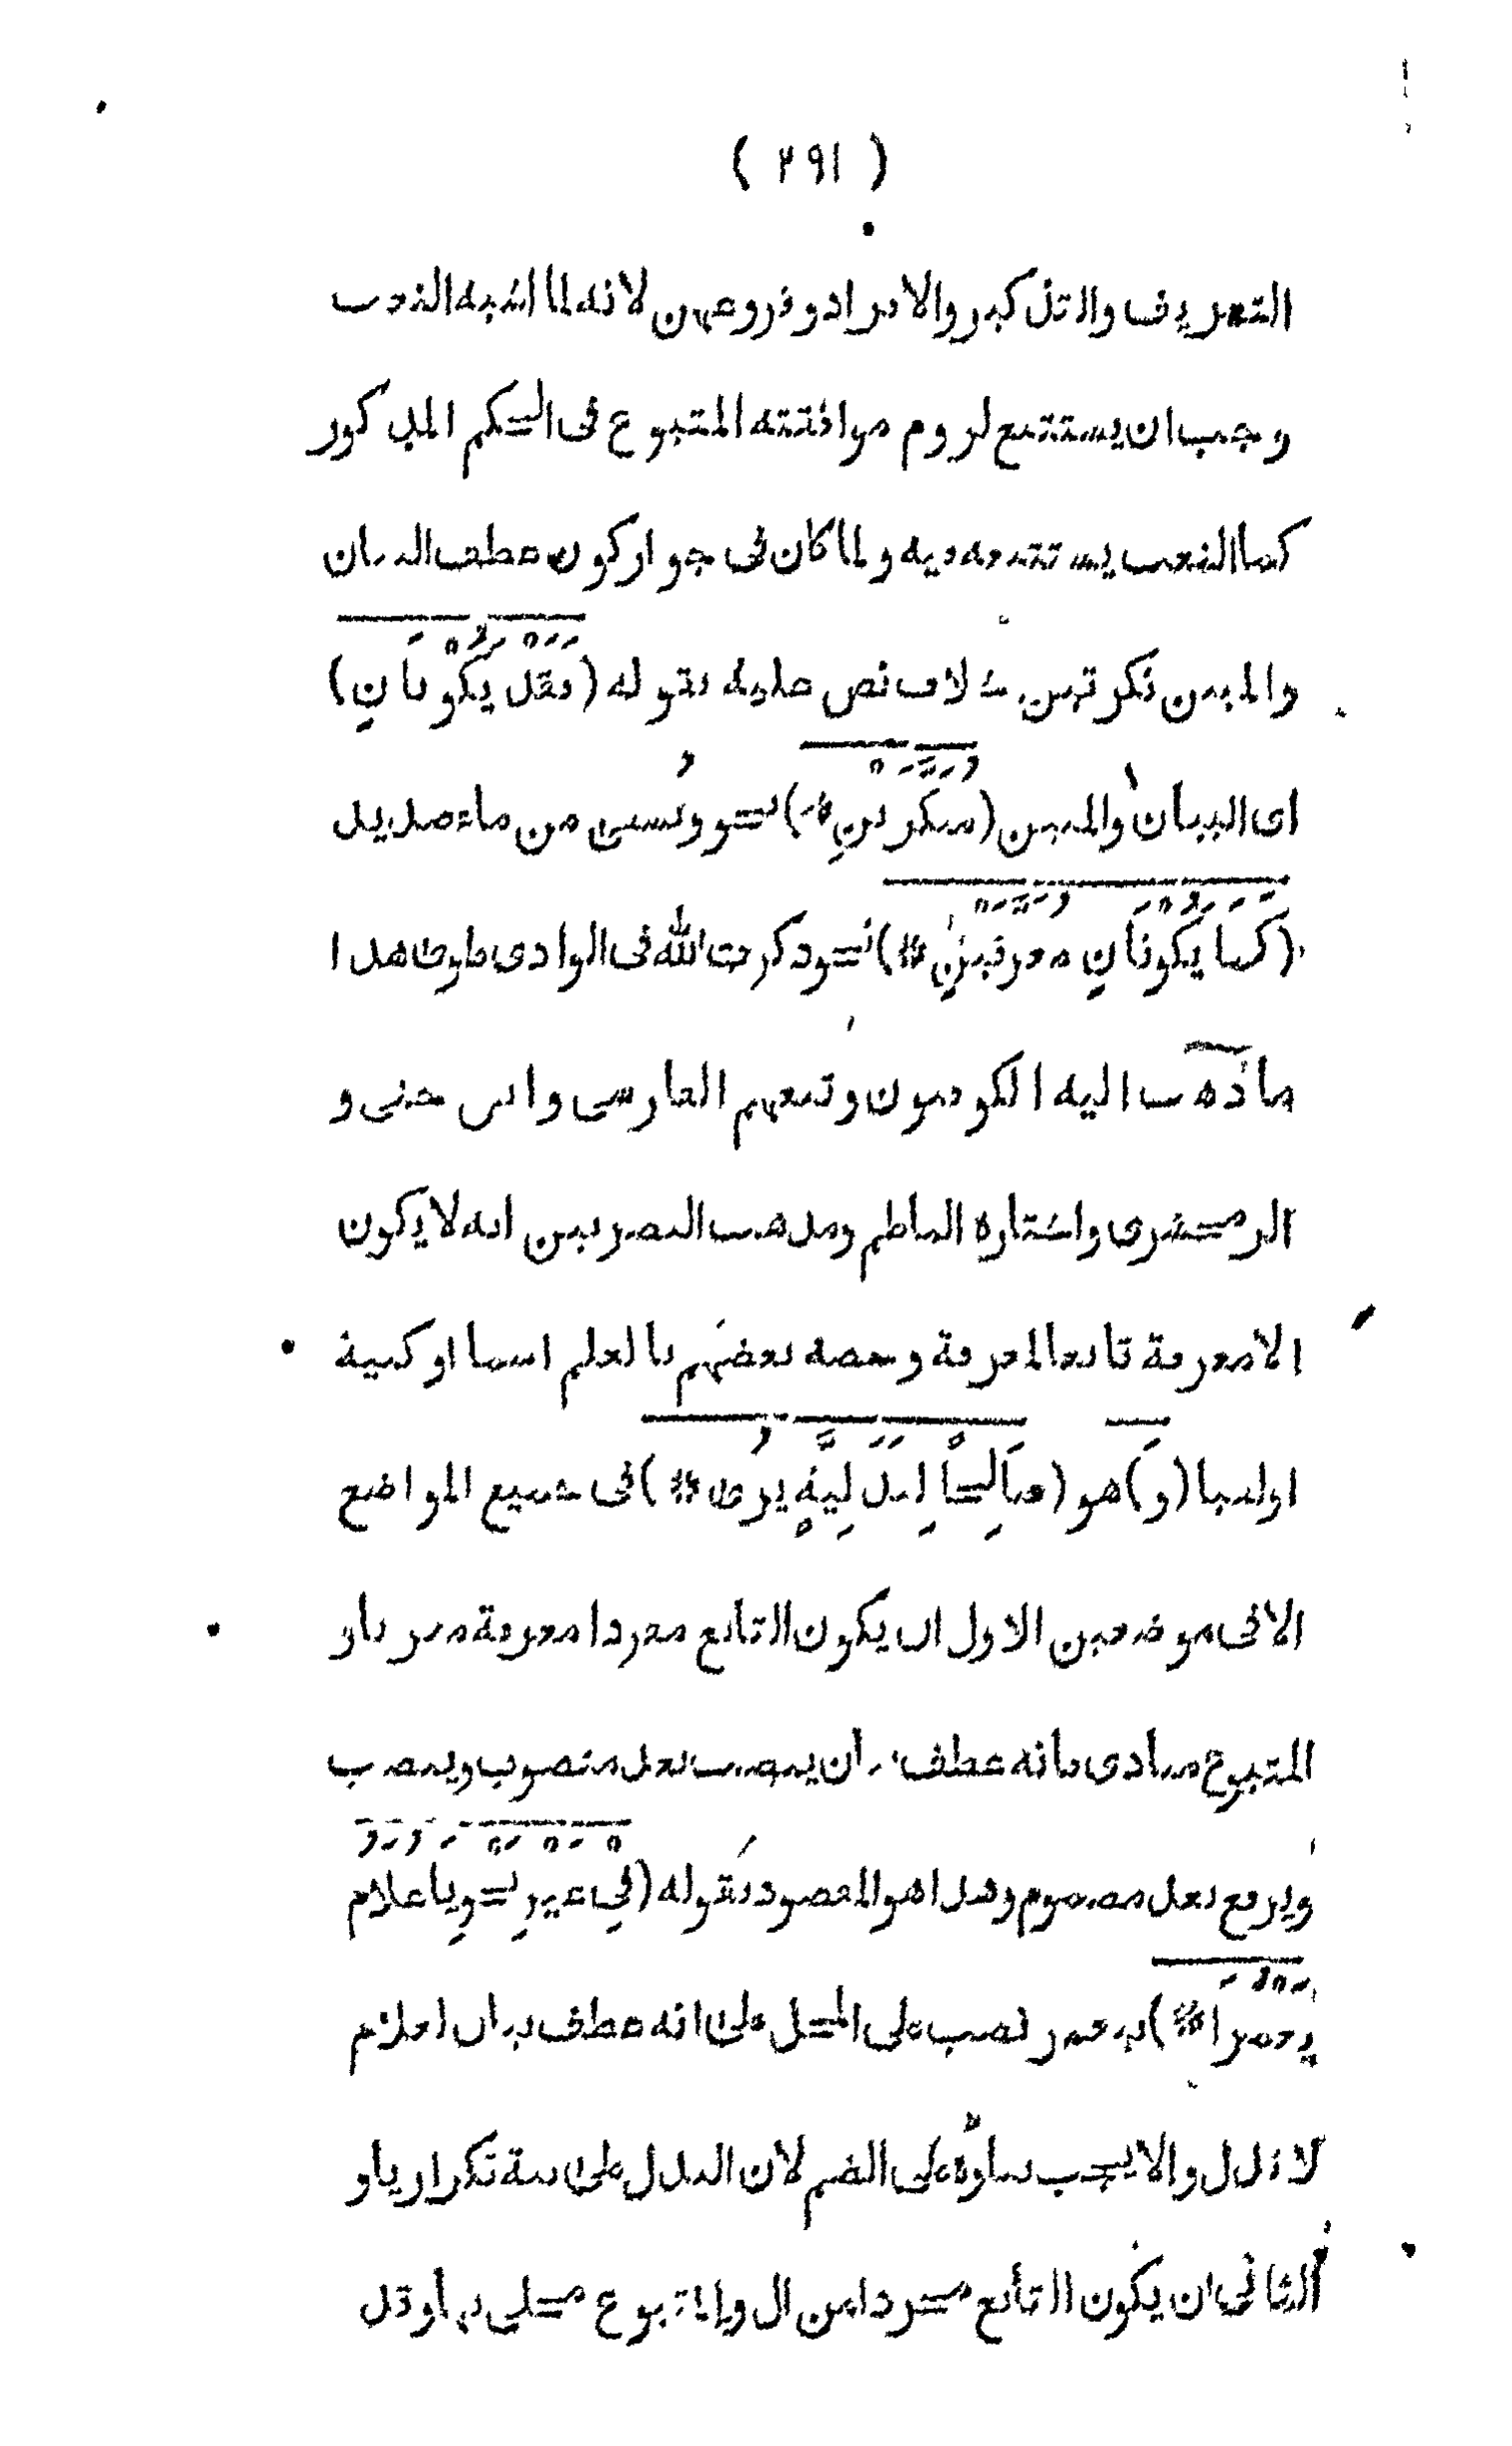 ( ٢٩١ )
التعريف والتذكير والافراد وفروعهن لانه لما اشبه النعت
وجب ان يستتبع لزوم موافقته المتبوع فى الحكم المذكور
كما النعت يستتبعه فيه ولما كان فى جواز كون عطف البيان
والمبين نكرتين خلاف نص عليه بقوله (فَقَدْ يَكُوْنَانِ)
اى البيان والمبين (مُنَكَّرَيْنِ *) نحو ويُسقى من ماء صديد
(كَمَا يَكُوْنَانِ مُعَرَّفَيْنِ *) نحو ذكرت الله فى الوادى طوى هذا
ما ذهب اليه الكوفيون وتبعهم الفارسى وابن جنى و
الزمخشرى واختاره الناظم ومذهب البصريين انه لا يكون
الا معرفة تابعا لمعرفة وخصه بعضهم بالعلم اسما او كنية
او لقبا (وَ) هو (صَالِحًا لِبَدَلِيَّةٍ يُرى *) فى جميع المواضع
الا فى موضعين الاول ان يكون التابع مفردا معرفة معربا و
المتبوع منادى فانه عطف ان ينصب بعد منصوب وينصب
ويرفع بعد مضموم وهذا هو المقصود بقوله (فِيْ غَيْرِ نَحْوِ يَا غُلَامُ
يَعْمُرَا *) فيعمر نصب على المحل على انه عطف بيان لغلام
لا بدل والا يجب بناؤه على الضم لان البدل على نية تكرار يا و
الثانى ان يكون التابع مجردا من ال والمتبوع محلى بها وقد